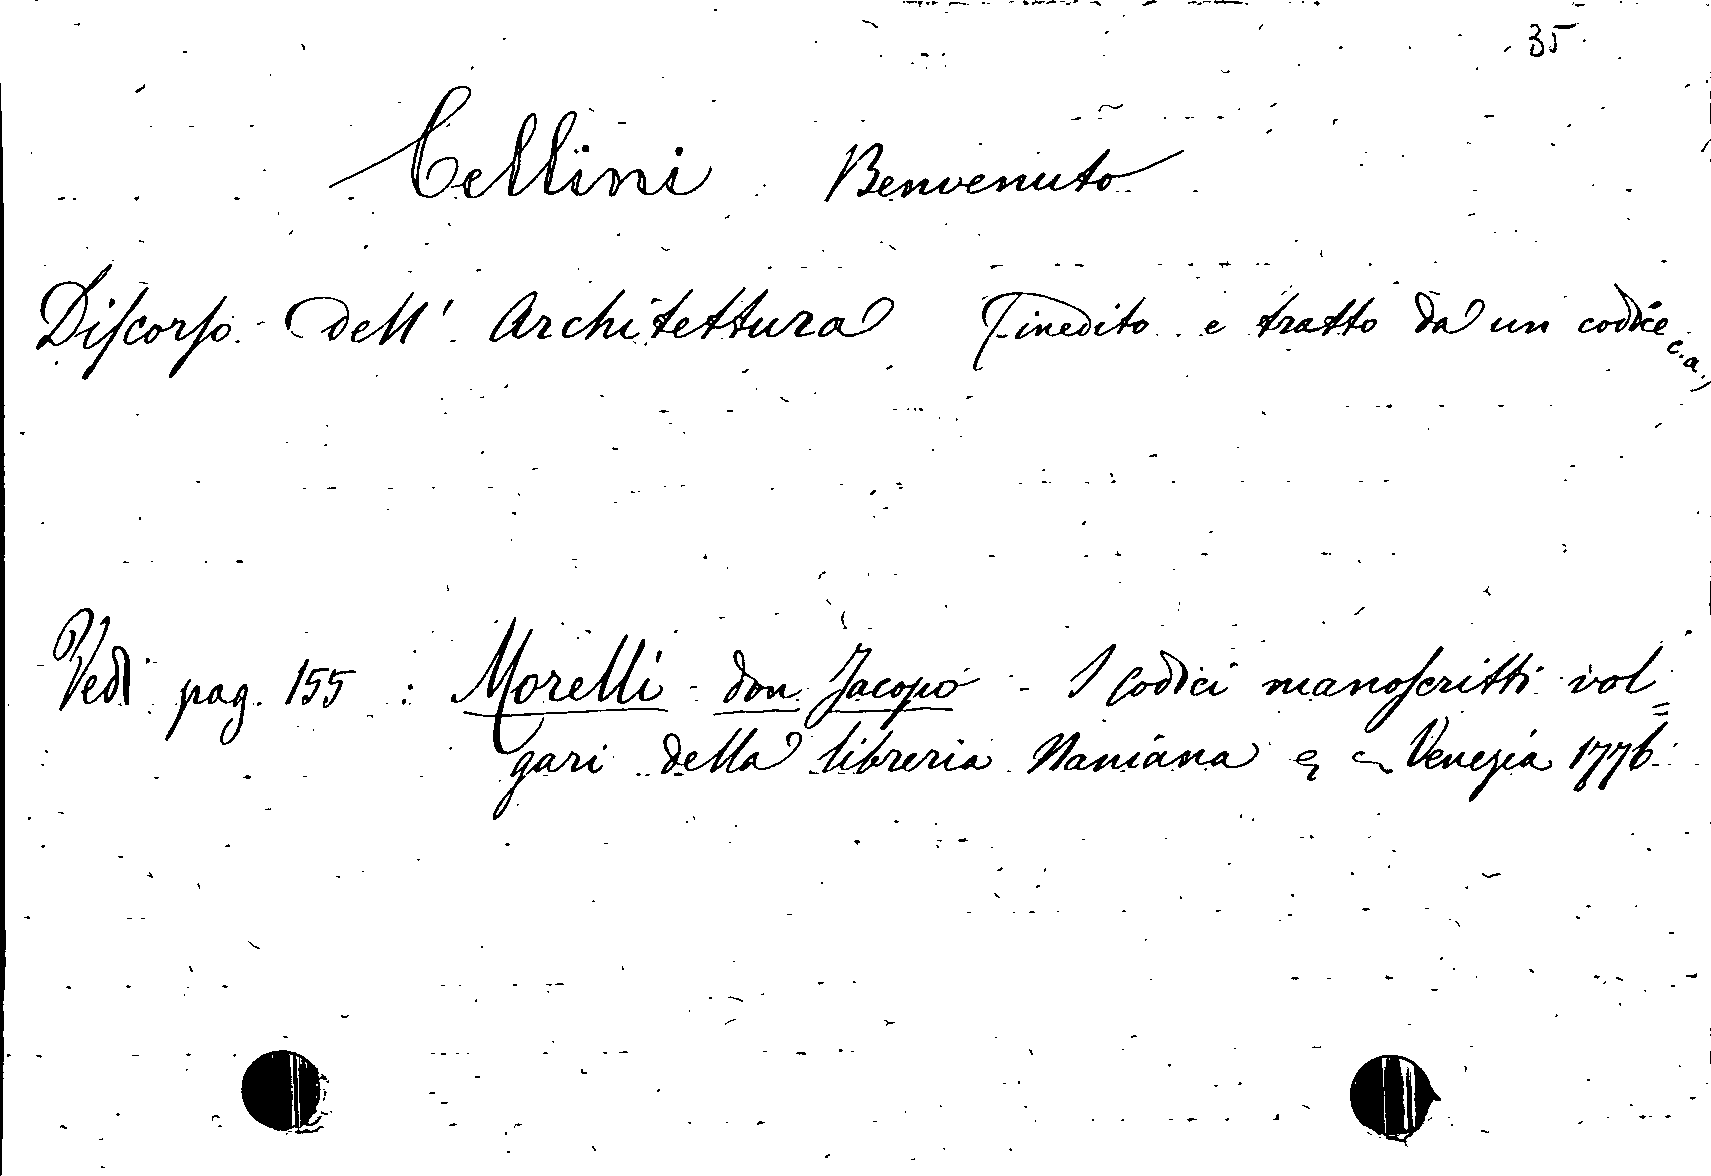 35
Cellini Benvenuto
Discorso dell' Architettura (inedito e tratto da un codice
c.a.)
Vedi pag. 155 : Morelli don Jacopo - I codici manoscritti vol=
gari della libreria Naniana Venezia 1776